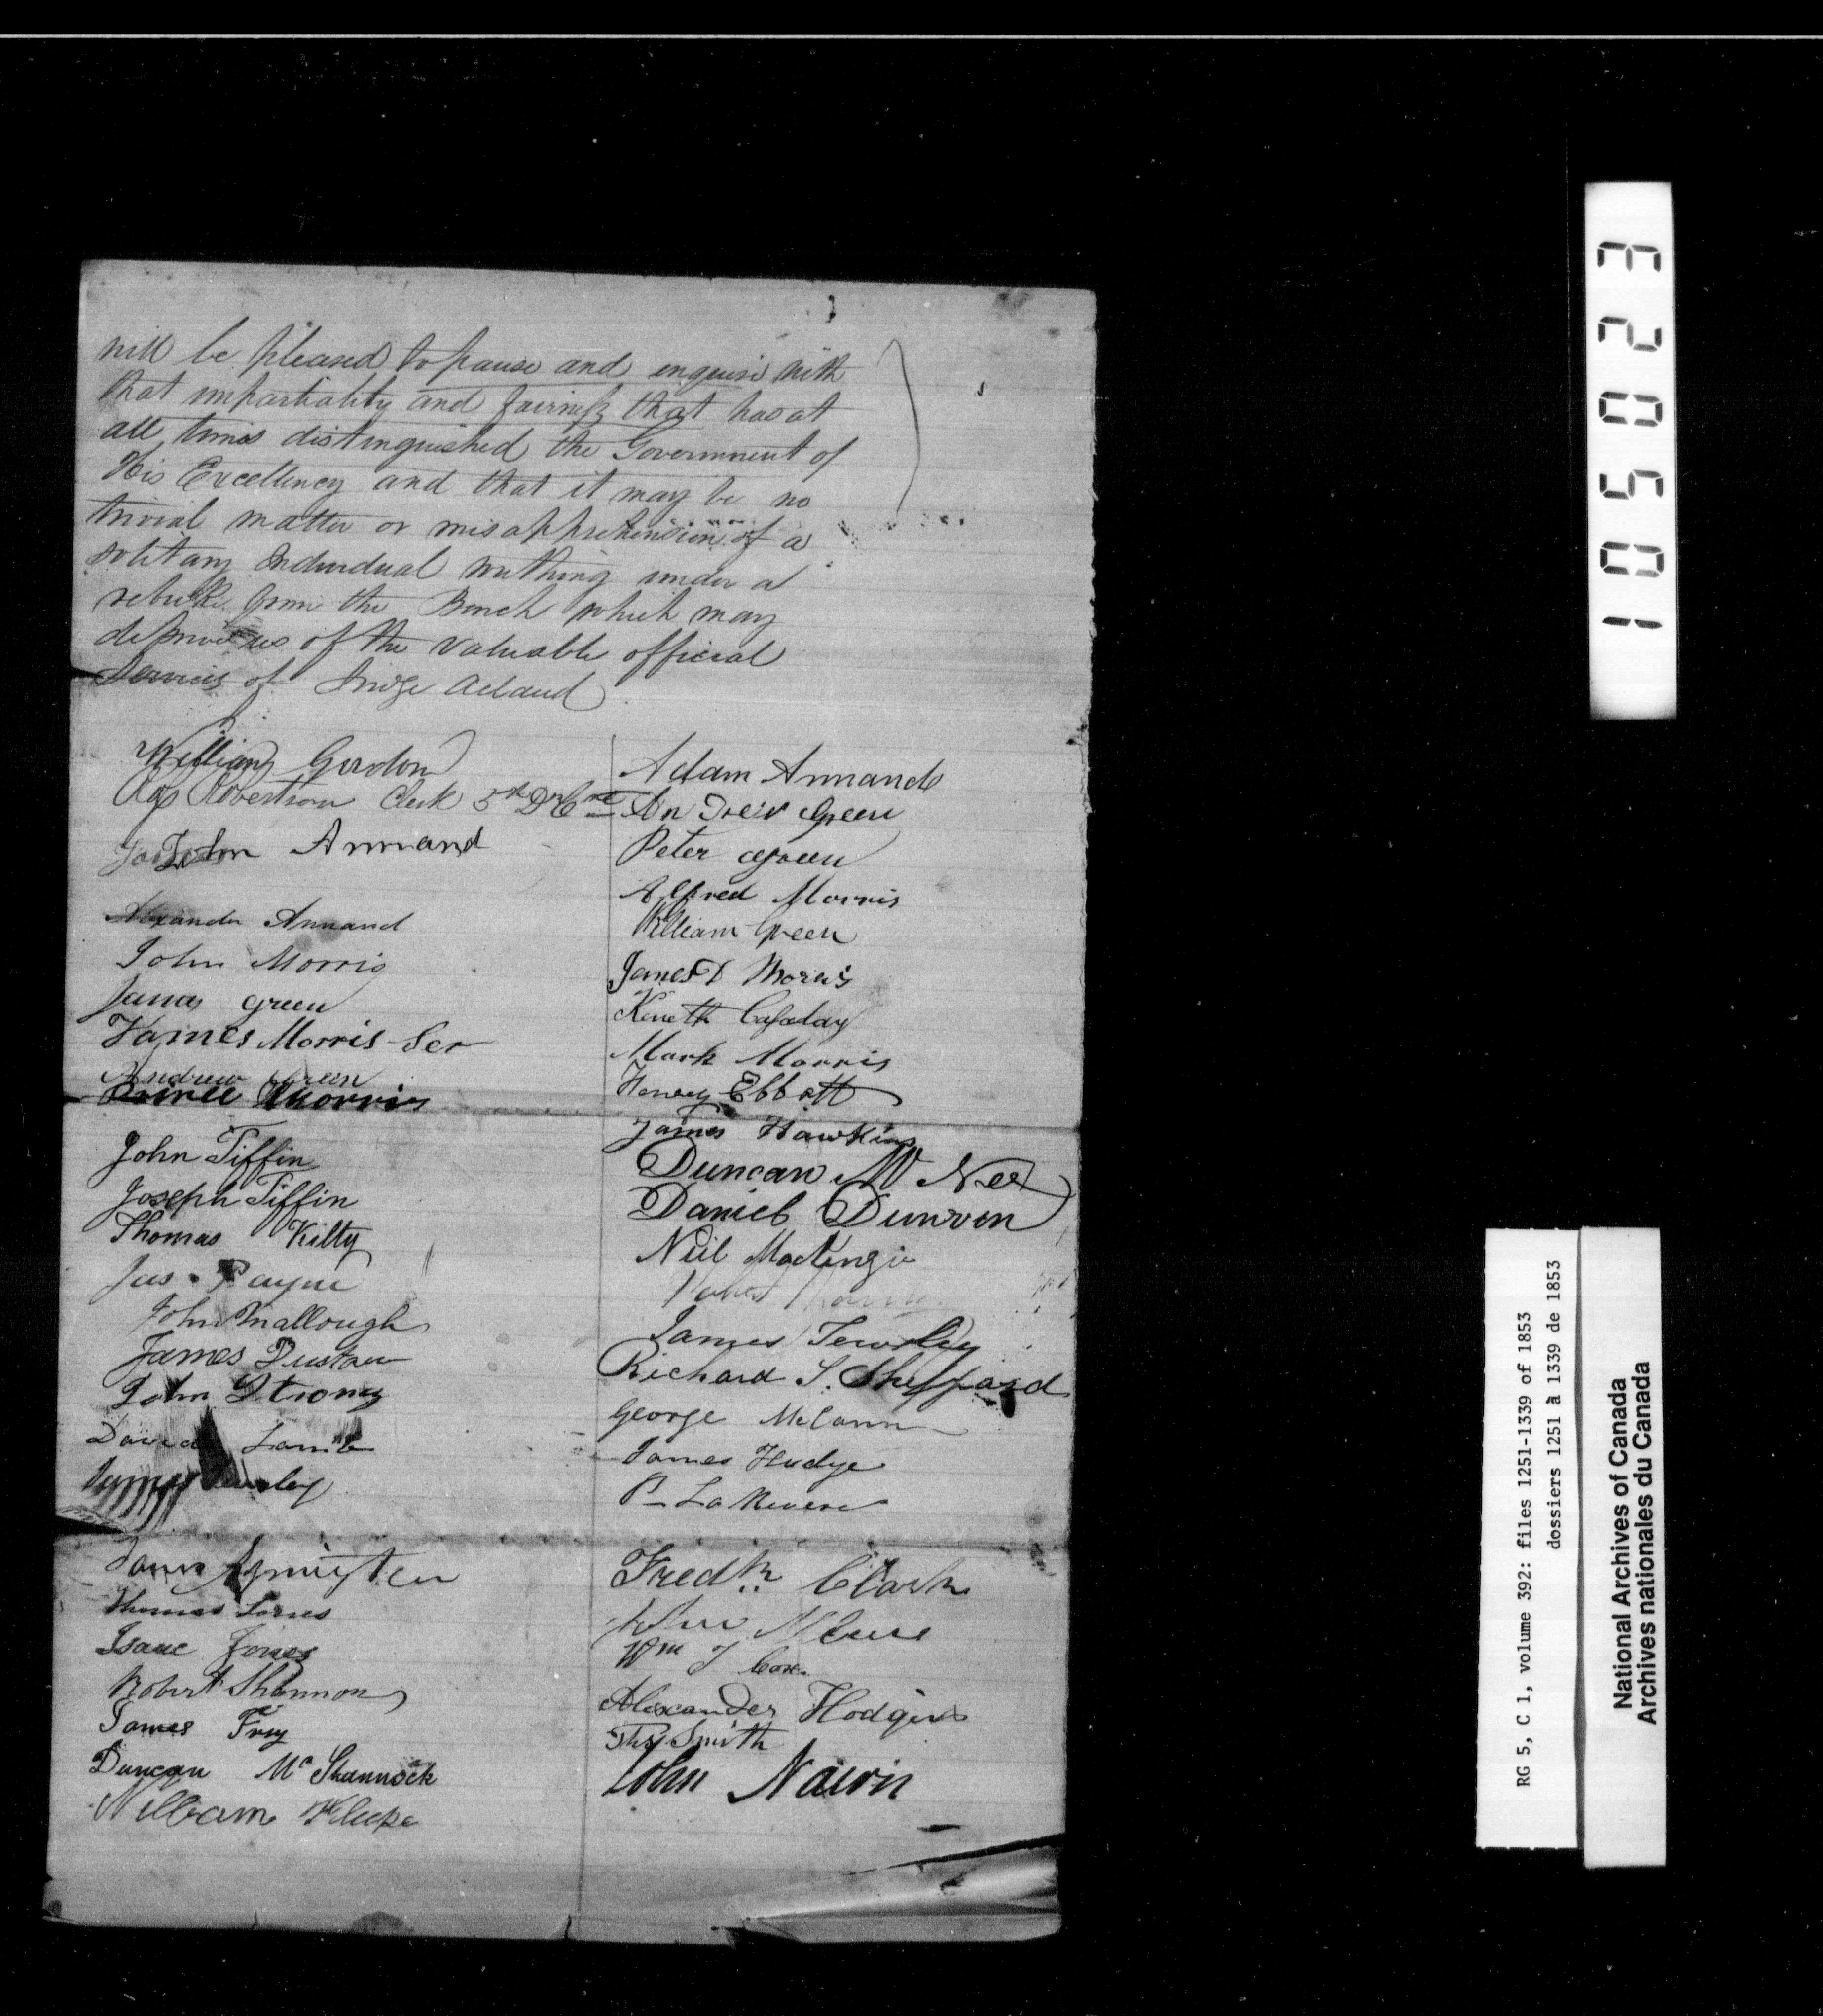 will be pleased to pause and enquire with
that impartiality and fairness that has at
all times distinguished the Government of
His Excellency and that it may be no
trivial matter or misapprehension of a
solitary Individual writhing under a
rebuke from the Bench which may
deprive us of the valuable official
services of Judge Acland
William Gordon
Robertson Clerk 5th D C
John Annand
Alexander Annand
John Morris
James Green
James Morris Ser
Andrew Green
Prince Morris
John Tiffin
Joseph Tiffin
Thomas Kilty
Jas. Payne
John Mallough
James Dustow
John Strong
David Lamb
James
Thomas Jones
Isaac Jones
Robert Shannon
James Frey
Duncan Mc Shannock
William
Adam Annand
Andrew Green
Peter Green
Alfred Morris
William Green
James D Morris
Keneth
Mark Morris
Henery Ebbott
James Hawkins
Duncan Mc Nee
Daniel
Neil MacKenzie
Robert
James Tewsley
Richard S. Sheppard
George McCann
James Hudge
P
Fredk. Clark
John
Wm J Cox
Alexander Hodgins
Thos Smith
John Nairn
105023
RG 5, C 1, volume 392: files 1251-1339 of 1853
dossiers 1251 à 1339 de 1853
National Archives of Canada
Archives nationales du Canada